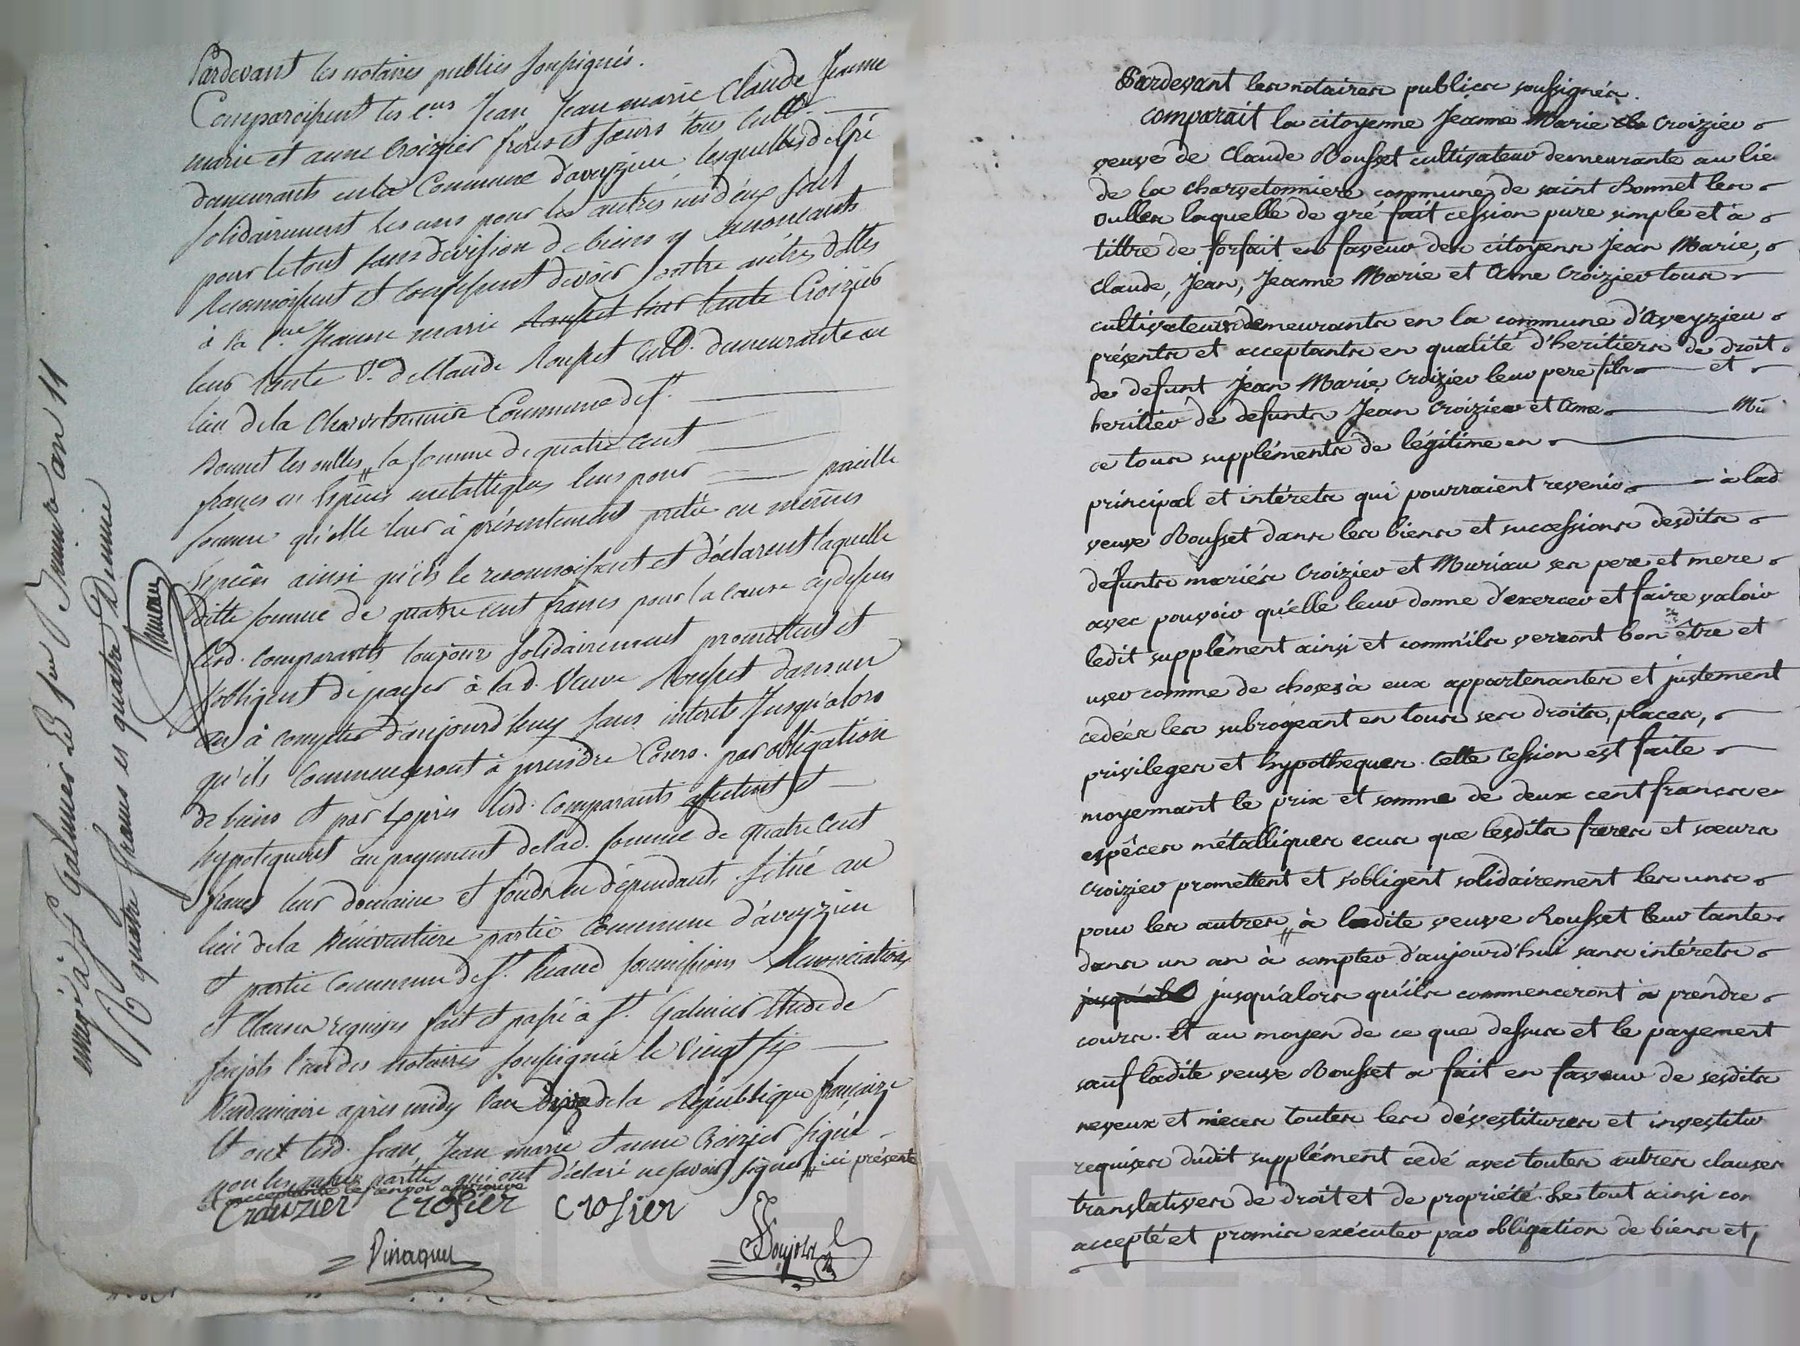 Pardevant les notaires publics soussignés.
Comparoissent les c.ens Jean Jean marie Claude Jeanne
marie et anne Croizier freres et sœurs tous cult.
demeurants en la Commune d'aveyzieu lesquels de gré
solidairement les uns pour les autres un d'eux seul
pour le tout sans division de biens y renonceants
Reconnoissent et confessent devoir entre autres dettes
à la c.ne Jeanne marie Rousset leur tante Croizier
leur tante V.e de Claude Rousset cult. demeurante au
lieu de la Charvetonnière Commune de S.t
Bonnet les oulles la somme de quatre cent
francs en Espèces metalliques leurs pour pareille
somme qu'elle leur à présentement pretée en mêmes
Espèces ainsi qu'ils le reconnoissent et déclarent laquelle
ditte somme de quatre cent francs pour la cause cydessus
lesd. comparants toujours solidairement promettent et
s'obligent de payer à lad. Veuve Rousset dans un
an à compter d'aujourd'huy sans interets jusqu'alors
qu'ils commenceront à prendre cours. par obligation
de biens et par Exprès lesd. comparants affectent et
hypotequent au payement de lad. somme de quatre cent
francs leur domaine et fonds en dépendants situé au
lieu de la Bénévantiere partie Commune d'aveyzieu
et partie commune de S.t soumissions Renonciations
et clauses requises fait et passé à S.t Galmier Etude de
soujols l'un des notaires soussignés le Vingt six
Vendemiaire après midy l'an onze de la République française
et ont lesd. Jean, Jean marie et anne Croizier signé
non les autres parties qui ont déclaré ne savoir signer ici présente
et acceptante le renvoi approuvé
Crouzier Crosier Crosier
Pinaquy Soujols
enreg.é à S.t Galmier le 3 Brumaire an 11
R quatre francs et quatre Decime
Pardevant les notaires publics soussignés.
comparait la citoyenne Jeanne Marie Croizier
veuve de Claude Rousset cultivateur demeurante au lie
de la charvetonniere commune de saint Bonnet les
oulles laquelle de gré fait cession pure simple et à
tittre de forfait en faveur des citoyens Jean Marie,
Claude, Jean, Jeanne Marie et Anne Croizier tous
cultivateurs demeurants en la commune d'Aveyzieu
présents et acceptants en qualité d'heritiers de droit
de defunt Jean Marie Croizier leur pere fils et
heritier de defunts Jean Croizier et Anne Mu
ce tous suppléments de légitime en
principal et intérets qui pourraient revenir à lad
veuve Rousset dans les biens et successions desdits
defunts mariés Croizier et Muriau ses pere et mere
avec pouvoir qu'elle leur donne d'exercer et faire valoir
ledit supplément ainsi et comm'ils verront bon être et
user comme de choses à eux appartenantes et justement
cedées les subrogeant en tous ses droits, places,
privileges et hypotheques. Cette cession est faite
moyennant le prix et somme de deux cent francs e
espêces métalliques ecus que lesdits freres et sœurs
Croizier promettent et s'obligent solidairement les uns
pour les autres, à ladite veuve Rousset leur tante
dans un an à compter d'aujourd'hui sans intérets
jusqu'alo jusqu'alors qu'ils commenceront à prendre
cours. Et au moyen de ce que dessus et le payement
sauf ladite veuve Rousset a fait en faveur de sesdits
neveux et nieces toutes les dévestitures et investitur
requises dudit supplément cedé avec toutes autres clauses
translatives de droit et de propriété. Le tout ainsi con
accepté et promis executer par obligation de biens et,